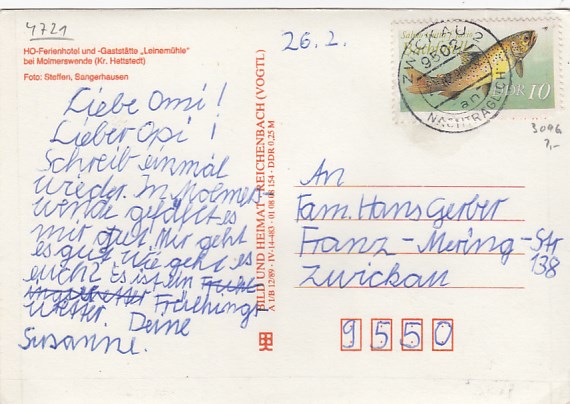 4721
HO-Ferienhotel und -Gaststätte „Leinemühle"
bei Molmerswende (Kr. Hettstedt)
Foto: Steffen, Sangerhausen
26. 2.
Liebe Omi!
Lieber Opi!
Schreib einmal
wieder. In Molmers-
wende gefällt es
mir gut. Mir geht
es gut, wie geht es
euch? Es ist ein
Frühlings-
wetter. Deine
Susanne.
BILD UND HEIMAT REICHENBACH (VOGTL)
A 1/B 12/89 · IV-14-483 · 01 08 08 154 · DDR 0,25 M
ZWICKAU 2
9502
NACHTRÄGLICH
DDR 10
3096
An
Fam. Hans Gerber
Franz-Mering-Str
138
Zwickau
9550